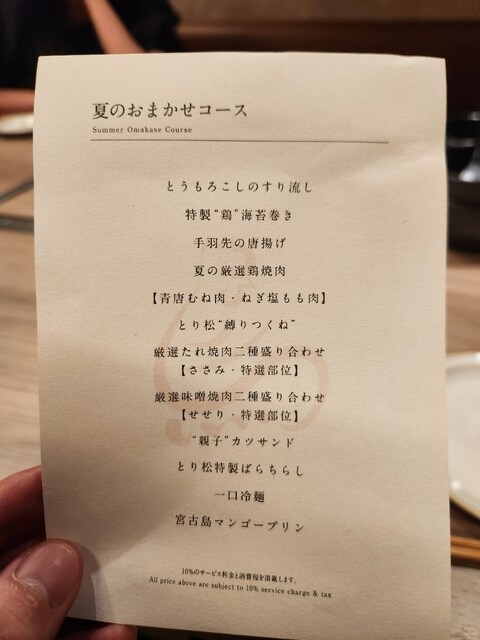 夏のおまかせコース
Summer Omakase Course
とうもろこしのすり流し
特製“鶏”海苔巻き
手羽先の唐揚げ
夏の厳選鶏焼肉
【青唐むね肉・ねぎ塩もも肉】
とり松“縛りつくね”
厳選たれ焼肉二種盛り合わせ
【ささみ・特選部位】
厳選味噌焼肉二種盛り合わせ
【せせり・特選部位】
“親子”カツサンド
とり松特製ばらちらし
一口冷麺
宮古島マンゴープリン
10%のサービス料金と消費税を頂戴します。
All price above are subject to 10% service charge & tax